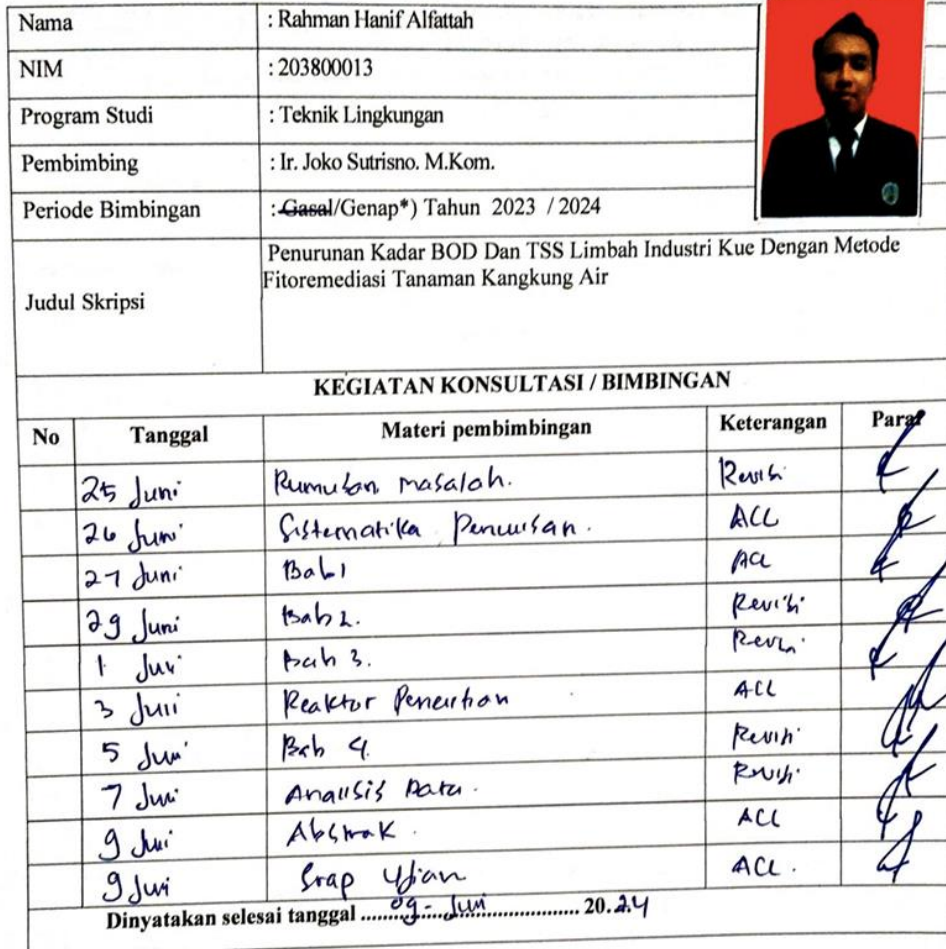 Nama : Rahman Hanif Alfattah
NIM : 203800013
Program Studi : Teknik Lingkungan
Pembimbing : Ir. Joko Sutrisno. M.Kom.
Periode Bimbingan : Gasal/Genap*) Tahun 2023 / 2024
Judul Skripsi : Penurunan Kadar BOD Dan TSS Limbah Industri Kue Dengan Metode
Fitoremediasi Tanaman Kangkung Air
KEGIATAN KONSULTASI / BIMBINGAN
No Tanggal Materi pembimbingan Keterangan Paraf
25 Juni Rumusan masalah. Revisi
26 Juni Sistematika Penulisan. ACC
27 Juni Bab 1 ACC
29 Juni Bab 2. Revisi
1 Juli Bab 3. Revisi
3 Juli Reaktor Penelitian ACC
5 Juli Bab 4 Revisi
7 Juli Analisis Data. Revisi
9 Juli Abstrak. ACC
9 Juli Siap Ujian ACC.
Dinyatakan selesai tanggal 09 - Juli 2024